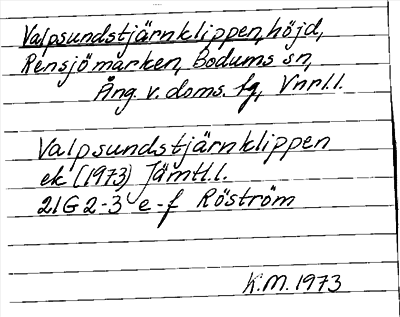 Valpsundstjärnklippen, höjd,
Rensjömarken, Bodums sn,
Ång. v. doms. fg, Vnrl.l.
Valpsundstjärnklippen
ek (1973) Jämtl.l.
21G 2-3 e-f Röström
K.M. 1973